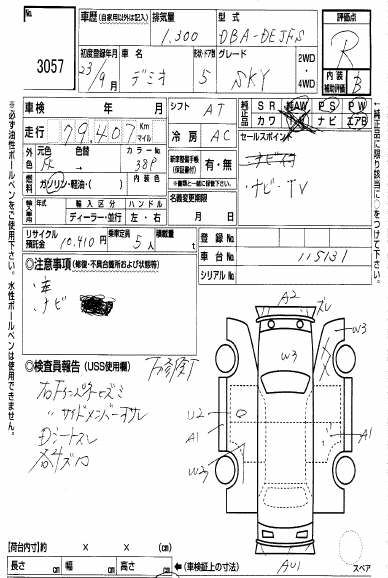 3057
車歴 (自家用以外は記入)
排気量
型式
評価点
1,300
DBA-DEJFS
R
初度登録年月
車名
形状・ドア数
グレード
2WD
・
4WD
23/9月
デミオ
5
SKY
内装
補助評価
B
車検
年
月
シフト
AT
純正品
SR
AW
PS
PW
カワ
TV
ナビ
エアB
走行
79,407
Km
マイル
冷房
AC
セールスポイント
外色
元色
色替
カラーNo.
灰
38P
新車整備手帳
(保証書付)
有・無
ナビ・TV
燃料
ガソリン・軽油・( )
内装色
※書類と一緒に提出下さい。
輸入車用
輸入区分
ハンドル
ディーラー・並行
左・右
名義変更期限
月
日
リサイクル
預託金
10,410円
乗車定員
5人
積載量
t
登録No.
車台No.
115131
シリアルNo.
◎注意事項 (修復・不具合箇所および状態等)
・ナビ
◎検査員報告 (USS使用欄)
サイドメンバー
シートスレ
A2
ズレ
W3
W3
U2
A1
A1
W2
AU1
【荷台内寸】約
X
X
cm
長さ
cm
幅
cm
高さ
cm
(車検証上の寸法)
スペア
※必ず油性ボールペンをご使用下さい。水性ボールペンは使用できません。
(純正品に限り該当に○をつけて下さい。)